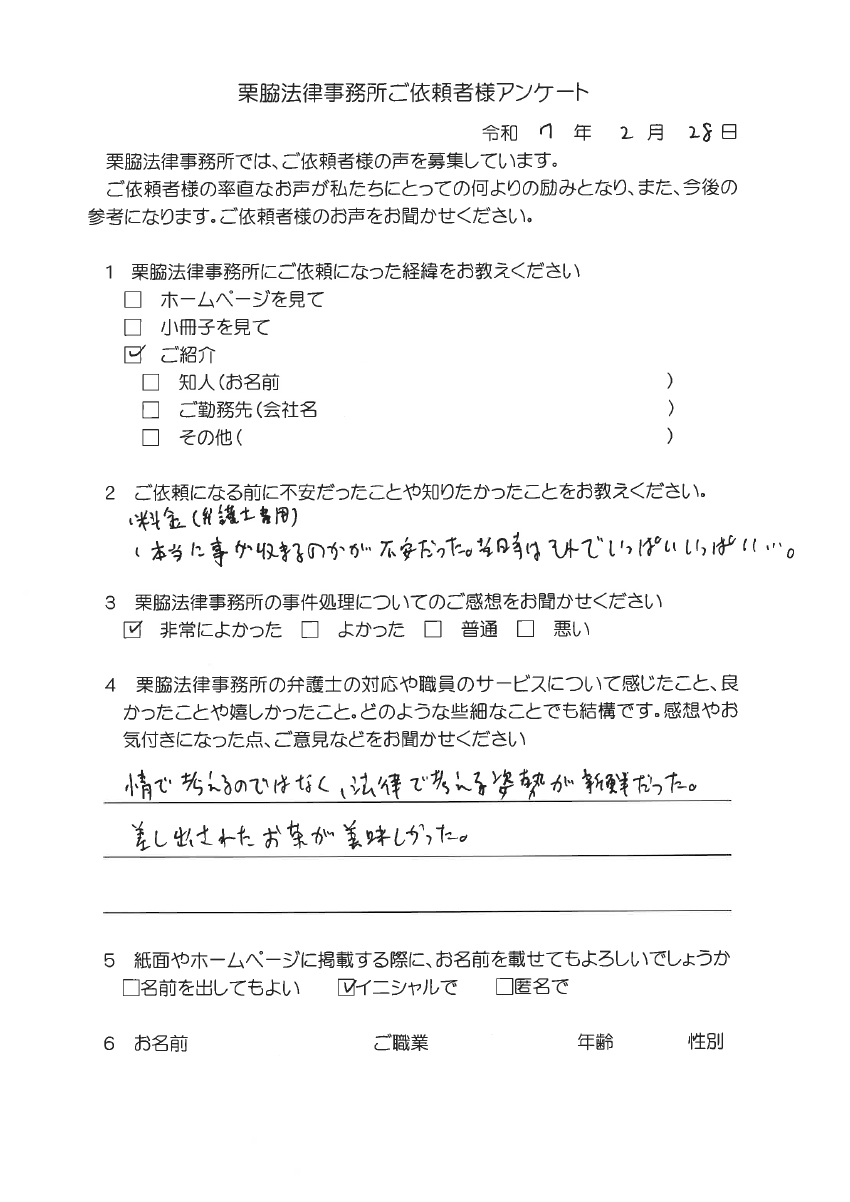 栗脇法律事務所ご依頼者様アンケート
令和 7 年 2 月 28 日
栗脇法律事務所では、ご依頼者様の声を募集しています。
ご依頼者様の率直なお声が私たちにとっての何よりの励みとなり、また、今後の
参考になります。ご依頼者様のお声をお聞かせください。
1 栗脇法律事務所にご依頼になった経緯をお教えください
□ ホームページを見て
□ 小冊子を見て
☑ ご紹介
□ 知人(お名前 )
□ ご勤務先(会社名 )
□ その他( )
2 ご依頼になる前に不安だったことや知りたかったことをお教えください。
、料金(弁護士費用)
、本当に事が収まるのかが不安だった。当時はそれでいっぱいいっぱい…。
3 栗脇法律事務所の事件処理についてのご感想をお聞かせください
☑ 非常によかった □ よかった □ 普通 □ 悪い
4 栗脇法律事務所の弁護士の対応や職員のサービスについて感じたこと、良
かったことや嬉しかったこと。どのような些細なことでも結構です。感想やお
気付きになった点、ご意見などをお聞かせください
情で考えるのではなく、法律で考える姿勢が新鮮だった。
差し出されたお茶が美味しかった。
5 紙面やホームページに掲載する際に、お名前を載せてもよろしいでしょうか
□名前を出してもよい ☑イニシャルで □匿名で
6 お名前 ご職業 年齢 性別